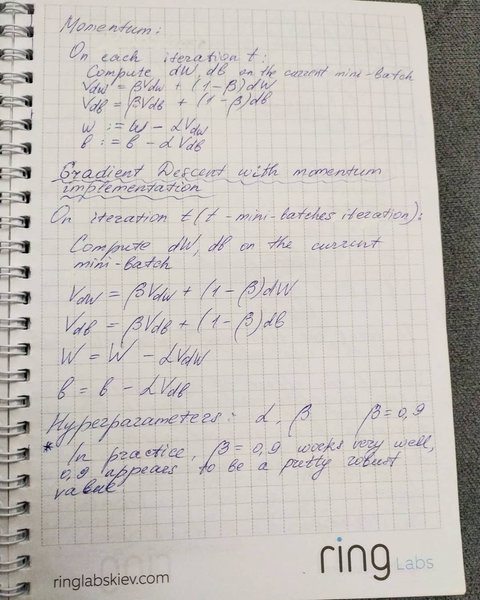 Momentum:
On each iteration t:
Compute dW, db on the current mini-batch
Vdw = βVdw + (1-β)dW
Vdb = βVdb + (1-β)db
w := w - αVdw
b := b - αVdb
Gradient Descent with momentum
implementation
On iteration t (t - mini-batches iteration):
Compute dW, db on the current
mini-batch
Vdw = βVdw + (1-β)dW
Vdb = βVdb + (1-β)db
W = W - αVdw
b = b - αVdb
Hyperparameters: α, β β=0,9
* In practice, β=0,9 works very well,
0,9 appears to be a pretty robust
value.
ringlabskiev.com
ring Labs